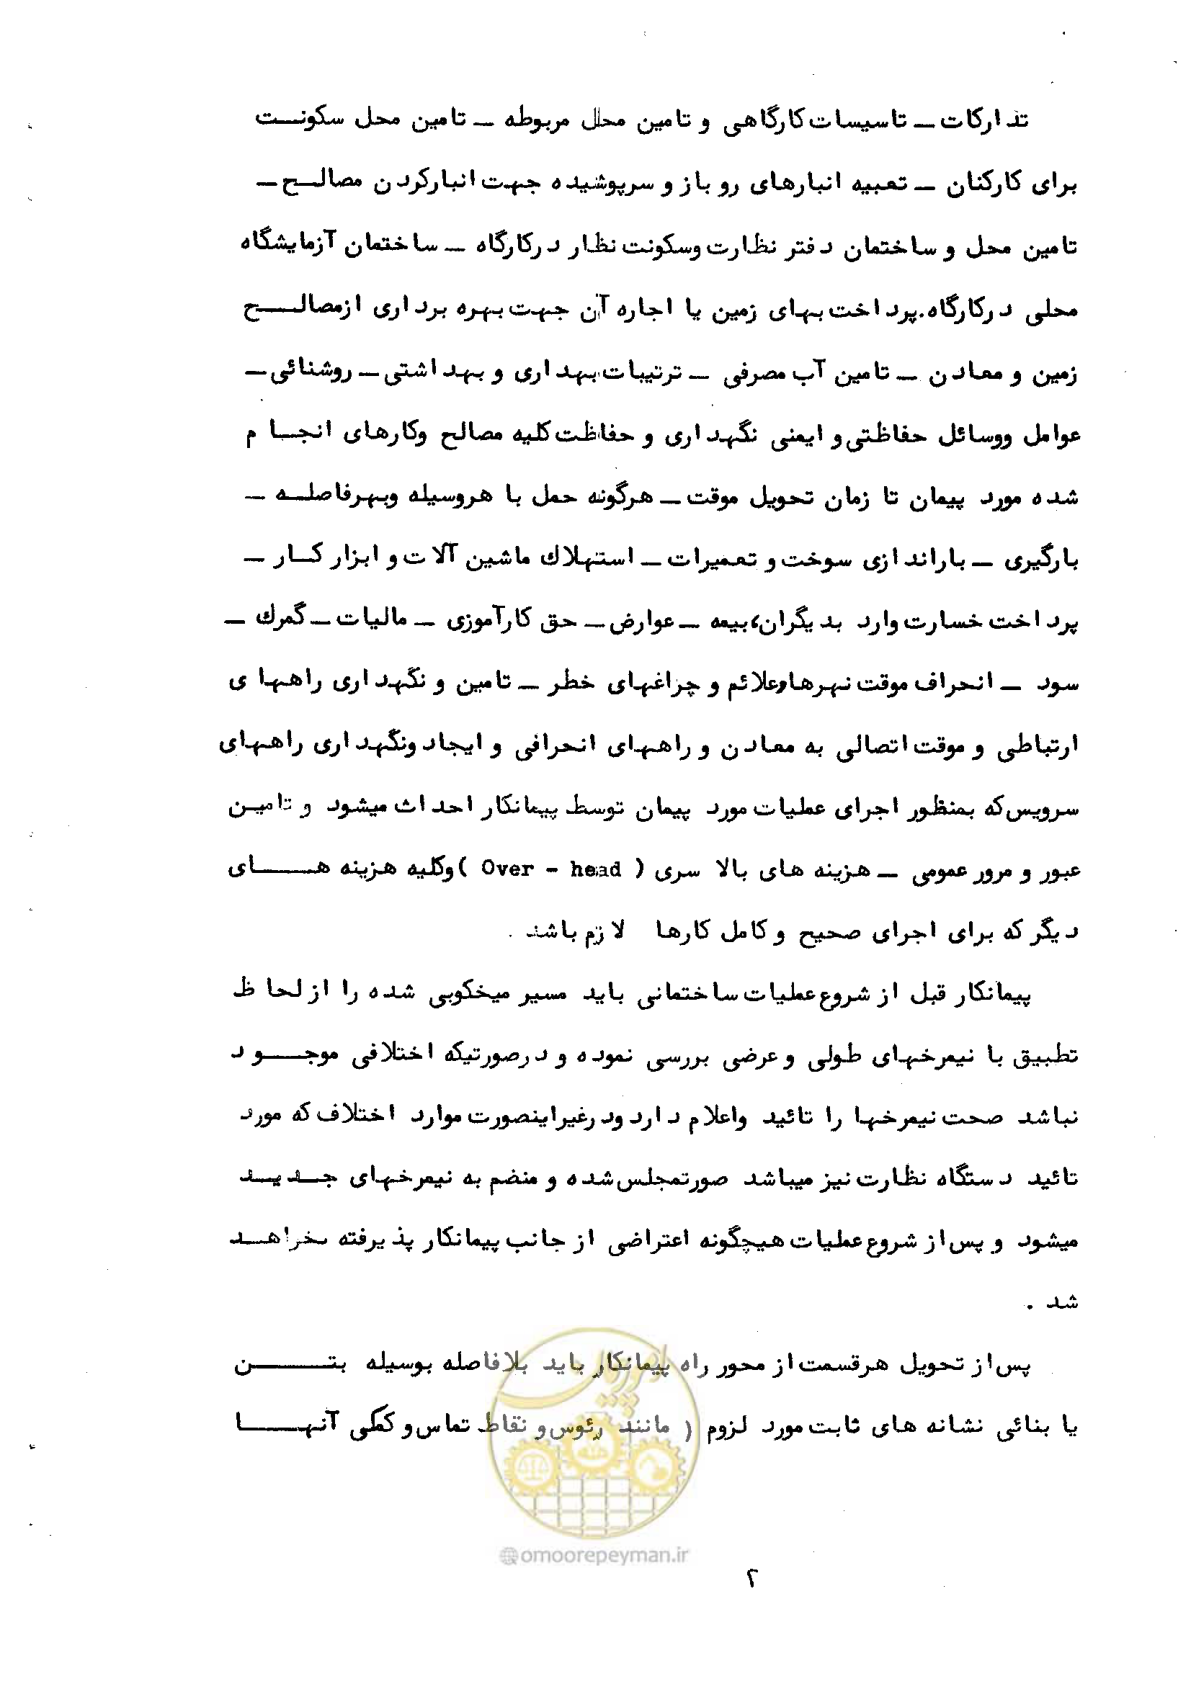 تدارکات ــ تاسیسات کارگاهی و تامین محل مربوطه ــ تامین محل سکونت
برای کارکنان ــ تعبیه انبارهای روباز و سرپوشیده جهت انبارکردن مصالح ــ
تامین محل و ساختمان دفتر نظارت وسکونت نظار درکارگاه ــ ساختمان آزمایشگاه
محلی درکارگاه.پرداخت بهای زمین یا اجاره آن جهت بهره برداری ازمصالح
زمین و معادن ــ تامین آب مصرفی ــ ترتیبات بهداری و بهداشتی ــ روشنائی ــ
عوامل ووسائل حفاظتی و ایمنی نگهداری و حفاظت کلیه مصالح وکارهای انجام
شده مورد پیمان تا زمان تحویل موقت ــ هرگونه حمل با هروسیله وبهرفاصله ــ
بارگیری ــ باراندازی سوخت و تعمیرات ــ استهلاك ماشین آلات و ابزار کار ــ
پرداخت خسارت وارد بدیگران، بیمه ــ عوارض ــ حق کارآموزی ــ مالیات ــ گمرك ــ
سود ــ انحراف موقت نهرها وعلائم و چراغهای خطر ــ تامین و نگهداری راههای
ارتباطی و موقت اتصالی به معادن و راههای انحرافی و ایجاد ونگهداری راههای
سرویس که بمنظور اجرای عملیات مورد پیمان توسط پیمانکار احداث میشود و تامین
عبور و مرور عمومی ــ هزینه های بالا سری ( Over - head ) وکلیه هزینه های
دیگر که برای اجرای صحیح و کامل کارها لازم باشد .
پیمانکار قبل از شروع عملیات ساختمانی باید مسیر میخکوبی شده را از لحاظ
تطبیق با نیمرخهای طولی و عرضی بررسی نموده و درصورتیکه اختلافی موجود
نباشد صحت نیمرخها را تائید واعلام دارد ودرغیراینصورت موارد اختلاف که مورد
تائید دستگاه نظارت نیز میباشد صورتمجلس شده و منضم به نیمرخهای جدید
میشود و پس از شروع عملیات هیچگونه اعتراضی از جانب پیمانکار پذیرفته نخواهد
شد .
پس از تحویل هرقسمت از محور راه پیمانکار باید بلافاصله بوسیله بتن
یا بنائی نشانه های ثابت مورد لزوم ( مانند رئوس و نقاط تماس و کمکی آنها
امور پیمان
@omoorepeyman.ir
۲